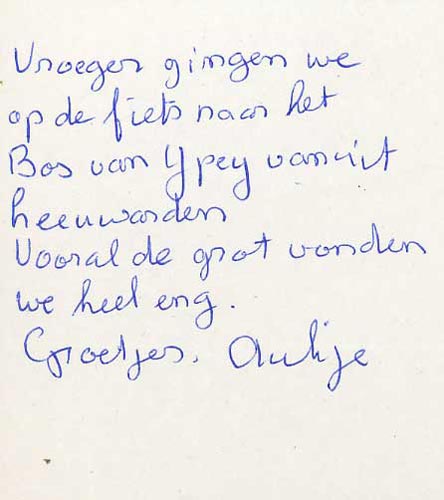 Vroeger gingen we
op de fiets naar het
Bos van Ypey vanuit
heeuwarden
Vooral de grot vonden
we heel eng.
Groetjes. Aukje